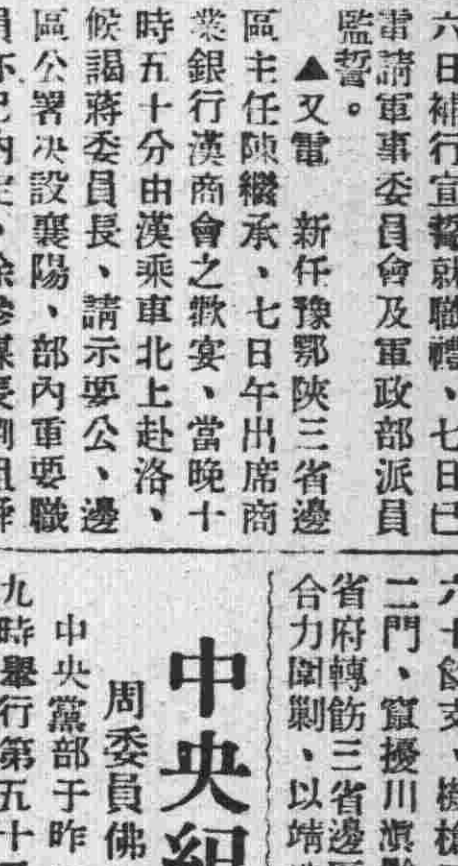 六日補行宣誓就職禮、七日已
電請軍事委員會及軍政部派員
監誓。
▲又電 新任豫鄂陝三省邊
區主任陳繼承、七日午出席商
業銀行漢商會之歡宴、當晚十
時五十分由漢乘車北上赴洛、
候謁蔣委員長、請示要公、邊
區公署决設襄陽、部內重要職
六十餘支、機槍
二門、竄擾川滇
省府轉飭三省邊區
合力圍剿、以靖
中央紀
周委員佛
中央黨部于昨
九時舉行第五十